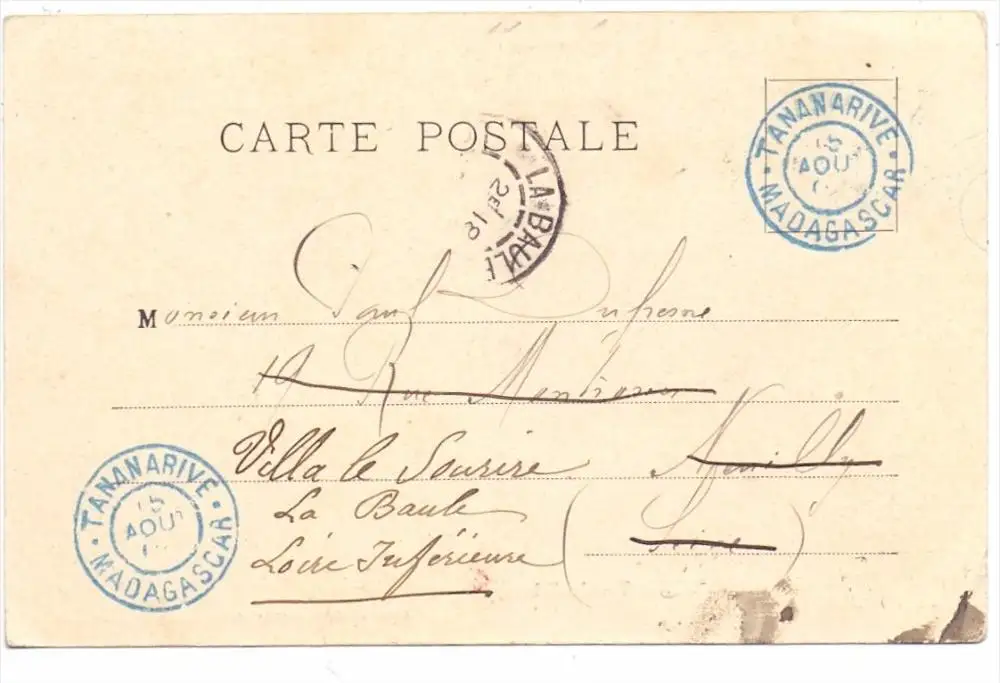 CARTE POSTALE
TANANARIVE
15
AOUT
MADAGASCAR
LA BAULE
Monsieur Paul Dufresne
19 Rue
Neuilly
(Seine)
Villa le Sourire
La Baule
Loire Inférieure
TANANARIVE
15
AOUT
MADAGASCAR